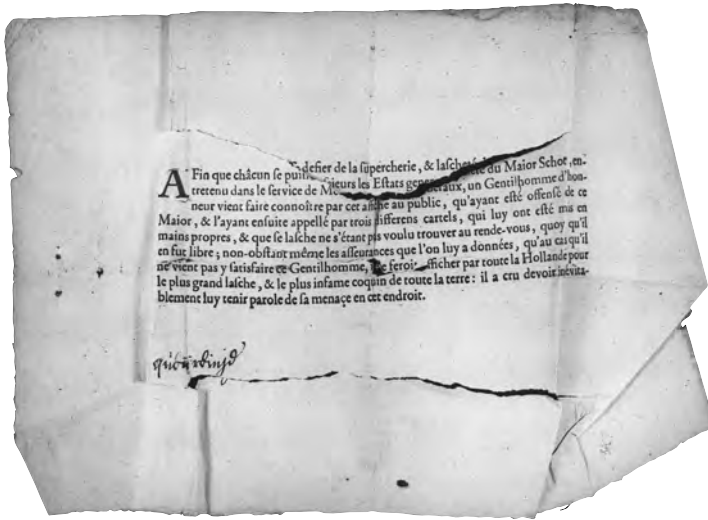 AFin que châcun se puisse défier de la supercherie, & lascheté du Maior Schot, en-
tretenu dans le service de Messieurs les Estats generaux, un Gentilhomme d'hon-
neur vient faire connoître par cet affiche au public, qu'ayant esté offensé de ce
Maior, & l'ayant ensuite appellé par trois differens cartels, qui luy ont esté mis en
mains propres, & que se lasche ne s'étant pas voulu trouver au rende-vous, quoy qu'il
en fut libre; non-obstant même les asseurances que l'on luy a données, qu'au cas qu'il
ne vient pas y satisfaire ce Gentilhomme, le feroit afficher par toute la Hollande pour
le plus grand lasche, & le plus infame coquin de toute la terre: il a cru devoir inévita-
blement luy tenir parole de sa menaçe en cet endroit.